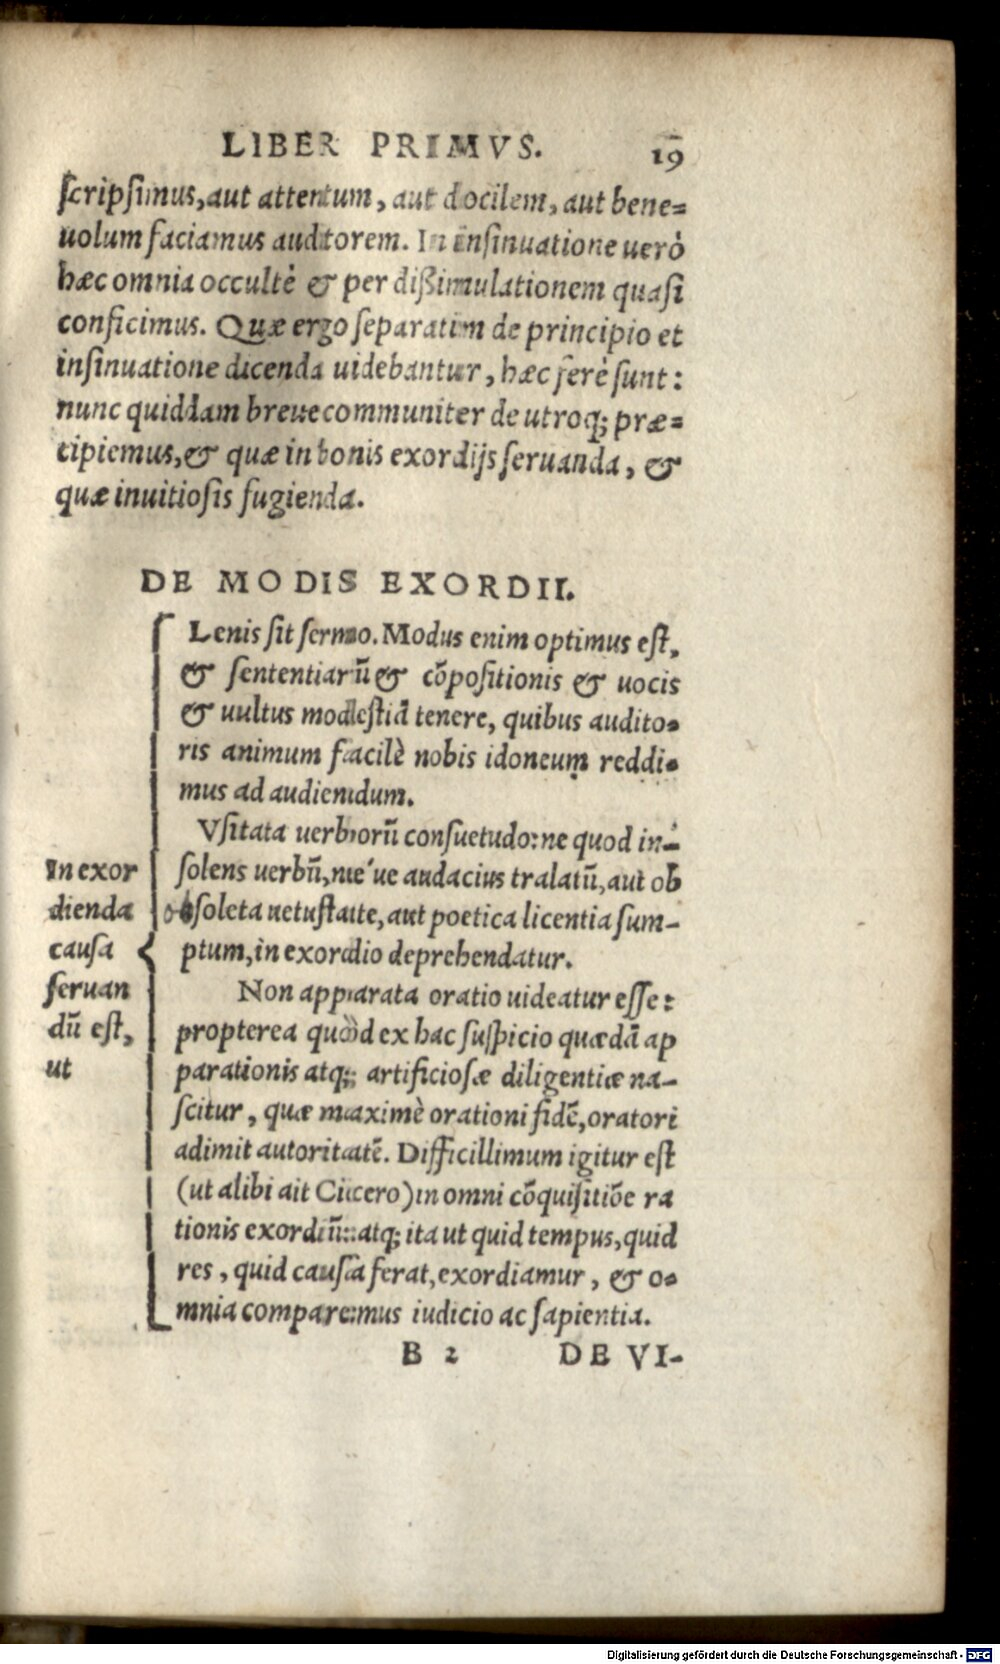 LIBER PRIMVS. 19
scripsimus, aut attentum, aut docilem, aut bene=
uolum faciamus auditorem. In insinuatione uerò
hæc omnia occultè & per dißimulationem quasi
conficimus. Quæ ergo separatim de principio et
insinuatione dicenda uidebantur, hæc ferè sunt:
nunc quiddam breue communiter de utroq; præ=
cipiemus, & quæ in bonis exordijs seruanda, &
quæ in uitiosis fugienda.
DE MODIS EXORDII.
In exor
dienda
causa
seruan
dũ est,
ut
Lenis sit sermo. Modus enim optimus est,
& sententiarũ & cõpositionis & uocis
& uultus modestiã tenere, quibus audito=
ris animum facilè nobis idoneum reddi=
mus ad audiendum.
Vsitata uerborũ consuetudo: ne quod in-
solens uerbũ, ne´ue audacius tralatũ, aut ob
obsoleta uetustate, aut poetica licentia sum-
ptum, in exordio deprehendatur.
Non apparata oratio uideatur esse:
propterea quòd ex hac suspicio quædã ap
parationis atq; artificiosæ diligentiæ na-
scitur, quæ maximè orationi fidẽ, oratori
adimit autoritatẽ. Difficillimum igitur est
(ut alibi ait Cicero) in omni cõquisitiõe ra
tionis exordiũ: atq; ita ut quid tempus, quid
res, quid causa ferat, exordiamur, & o=
mnia comparemus iudicio ac sapientia.
B 2 DE VI-
Digitalisierung gefördert durch die Deutsche Forschungsgemeinschaft - DFG